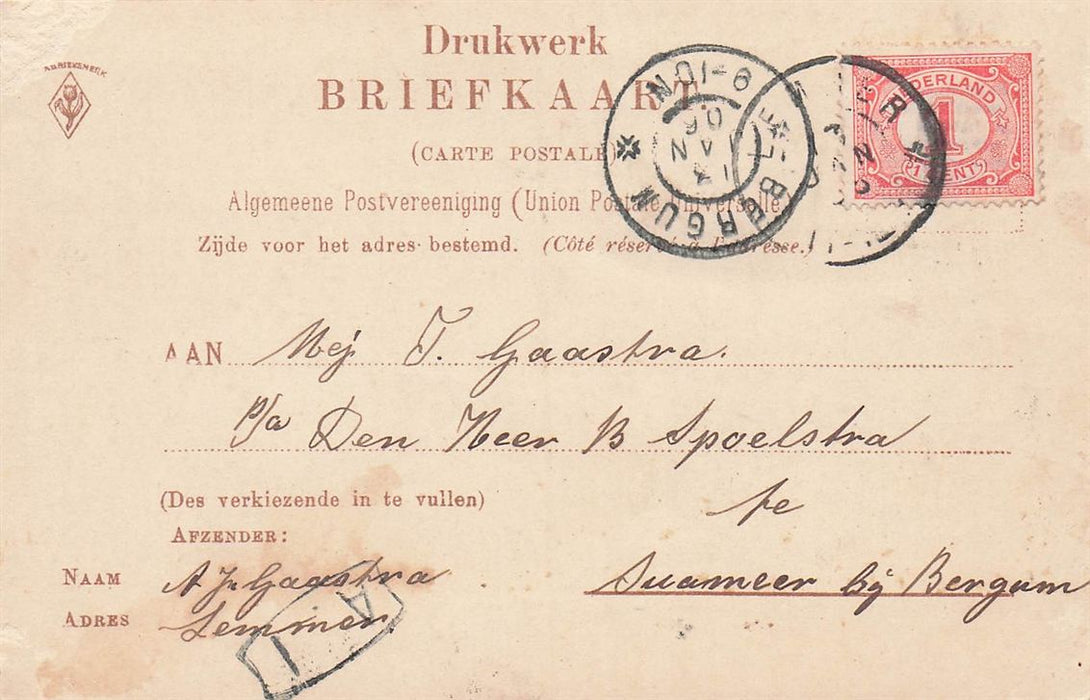 FABRIEKSMERK
Drukwerk
BRIEFKAART.
(CARTE POSTALE)
Algemeene Postvereeniging (Union Postale Universelle)
Zijde voor het adres bestemd. (Côté réservé à l'adresse.)
NEDERLAND
1
1 CENT
BERGUM
AAN Mej. T. Gaastra.
p/a Den Heer B Spoelstra
te
Suameer bij Bergum
(Des verkiezende in te vullen)
AFZENDER:
NAAM A J Gaastra
ADRES Lemmer.